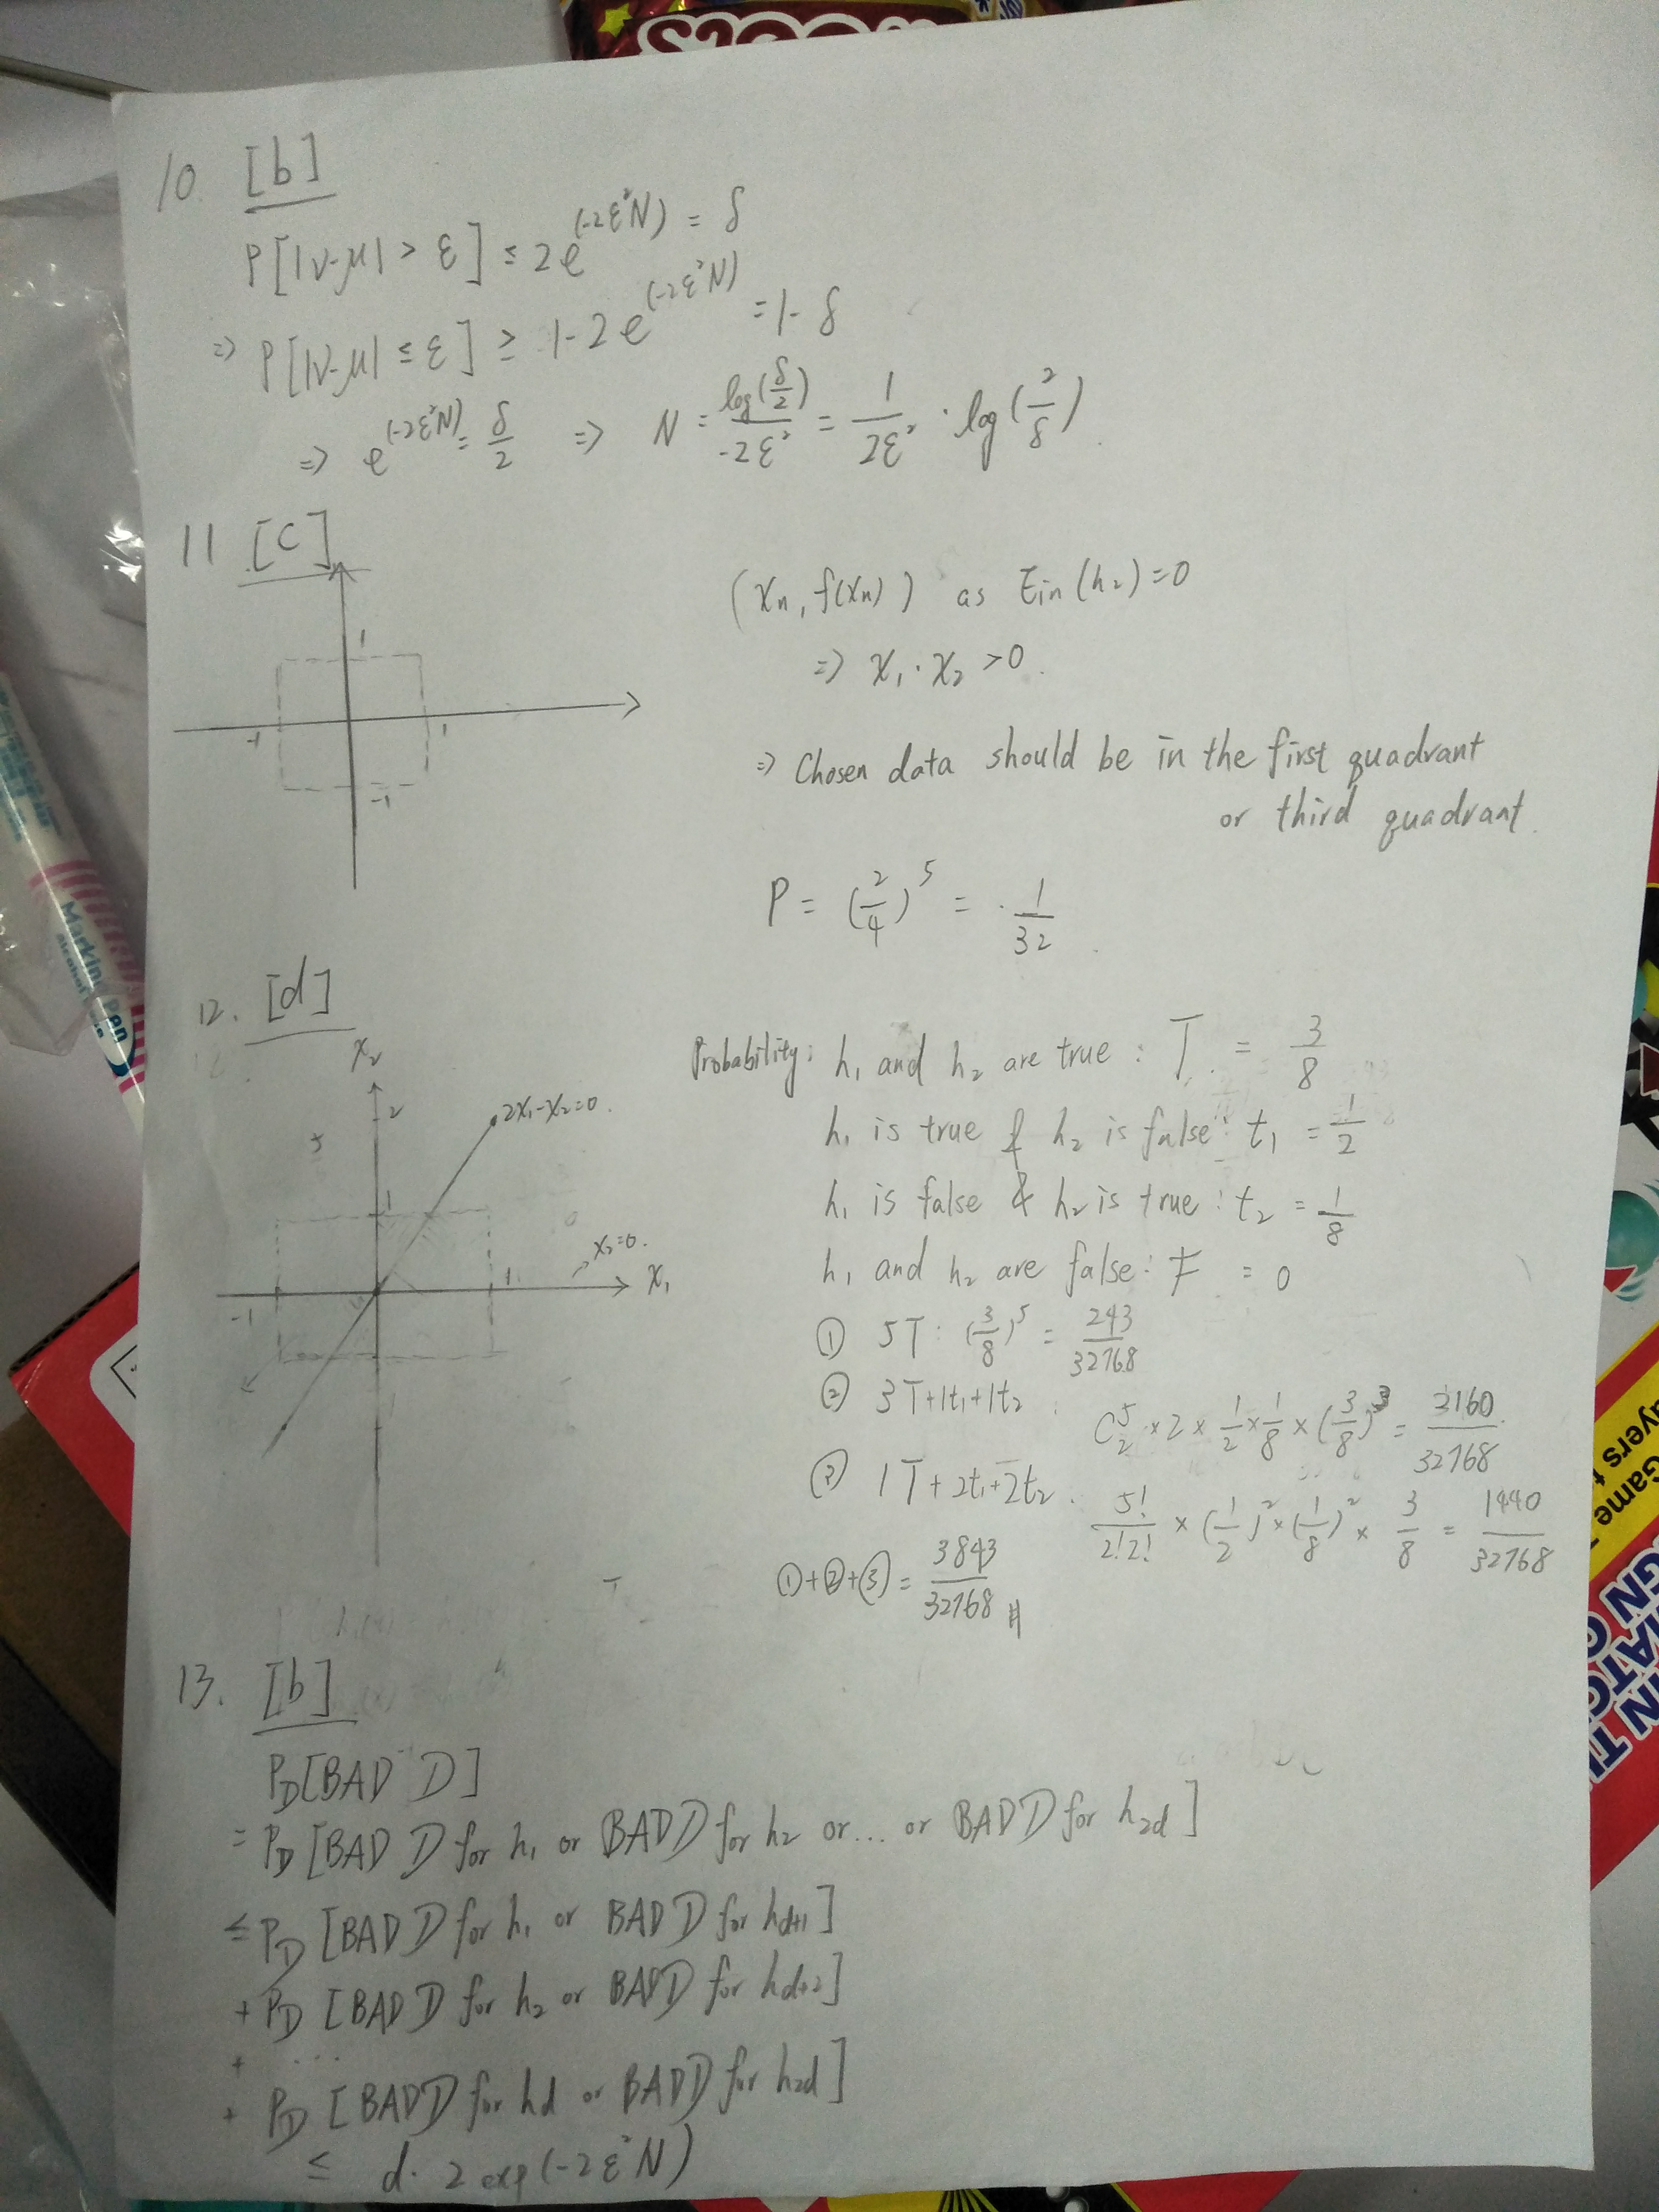 10. [b]
P[|ν-μ| > ε] ≤ 2e^(-2ε²N) = δ
=> P[|ν-μ| ≤ ε] ≥ 1-2e^(-2ε²N) = 1-δ
=> e^(-2ε²N) = δ/2 => N = log(δ/2)/-2ε² = 1/2ε² · log(2/δ)
11 [c]
1
-1
1
-1
(xn, f(xn)) as Ein(h2)=0
=> x1·x2 >0.
=> Chosen data should be in the first quadrant
or third quadrant.
P = (2/4)^5 = 1/32
12. [d]
x2
2
2x1-x2=0.
1
x2=0.
x1
-1
1
Probability: h1 and h2 are true : T = 3/8
h1 is true & h2 is false : t1 = 1/2
h1 is false & h2 is true : t2 = 1/8
h1 and h2 are false : F = 0
① 5T : (3/8)^5 = 243/32768
② 3T+1t1+1t2 : C^5_2 ×2× 1/2 × 1/8 × (3/8)^3 = 2160/32768
③ 1T+2t1+2t2. 5!/2!2! × (1/2)² × (1/8)² × 3/8 = 1440/32768
①+②+③ = 3843/32768 #
13. [b]
PD[BAD D]
= PD [BAD D for h1 or BAD D for h2 or... or BAD D for h2d]
≤ PD [BAD D for h1 or BAD D for hd+1]
+ PD [BAD D for h2 or BAD D for hd+2]
+ ...
+ PD [BAD D for hd or BAD D for h2d]
≤ d· 2 exp(-2ε²N)
Marking Pen
Alcohol
Game